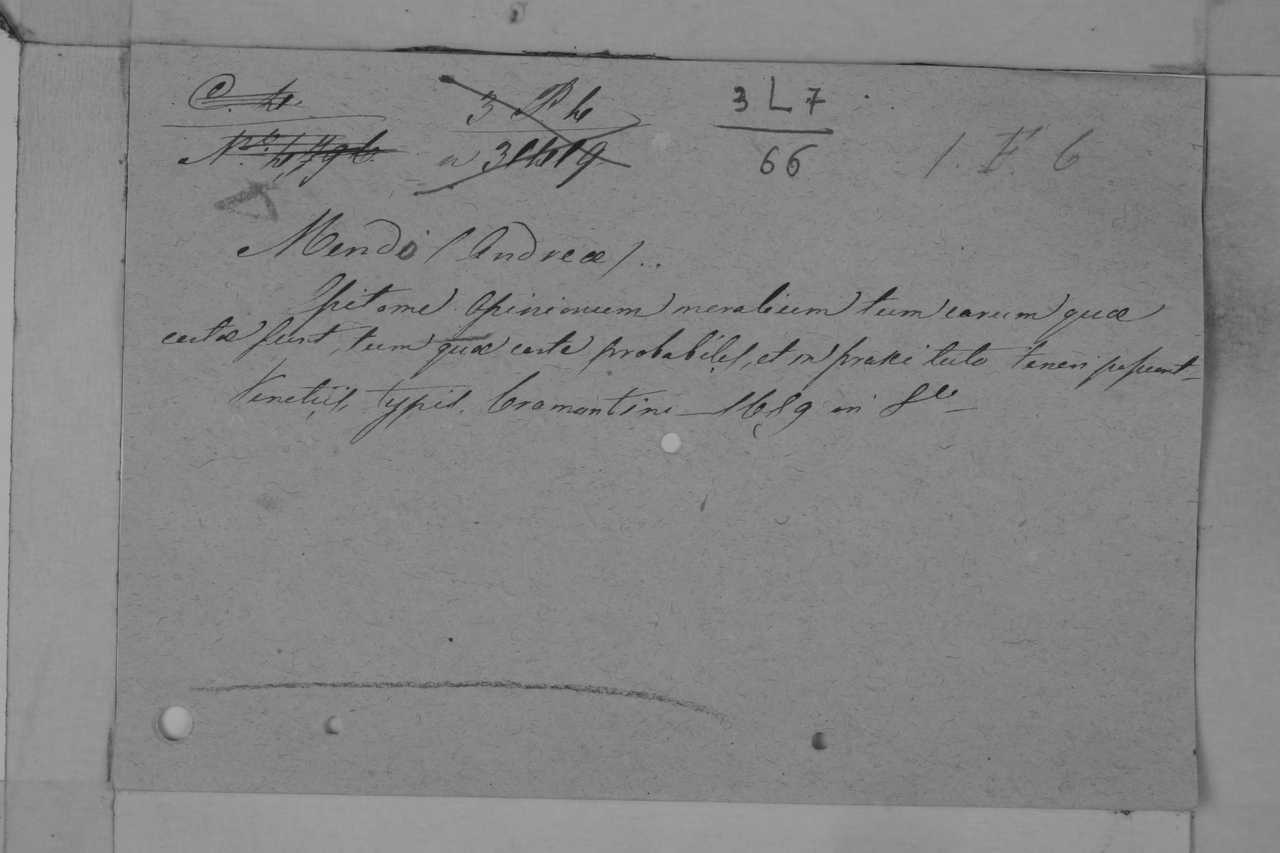 3 L 7
66
1. F. 6
Mendo (Andreæ)..
Epitome Opinionum moralium tum earum quæ
certæ sunt, tum quæ certe probabiles, et in praxi tuto teneri possunt
Venetiis, typis. Bramontini 1689 in 8º